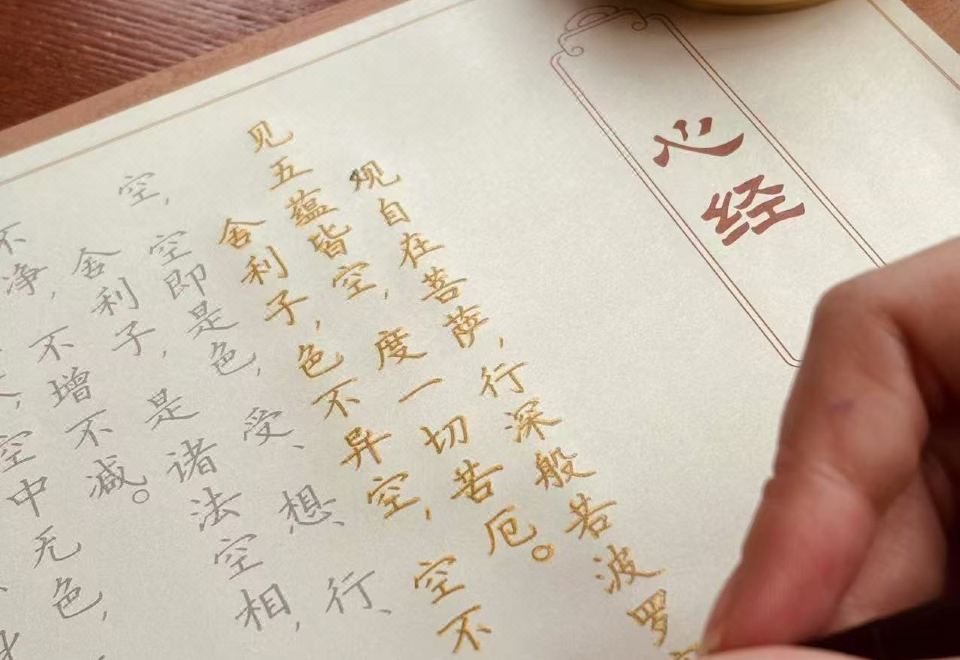 心经
观自在菩萨,行深般若波罗
见五蕴皆空,度一切苦厄。
舍利子,色不异空,空不
空,空即是色,受、想、行、
舍利子,是诸法空相,
不净,不增不减。
空中无色,